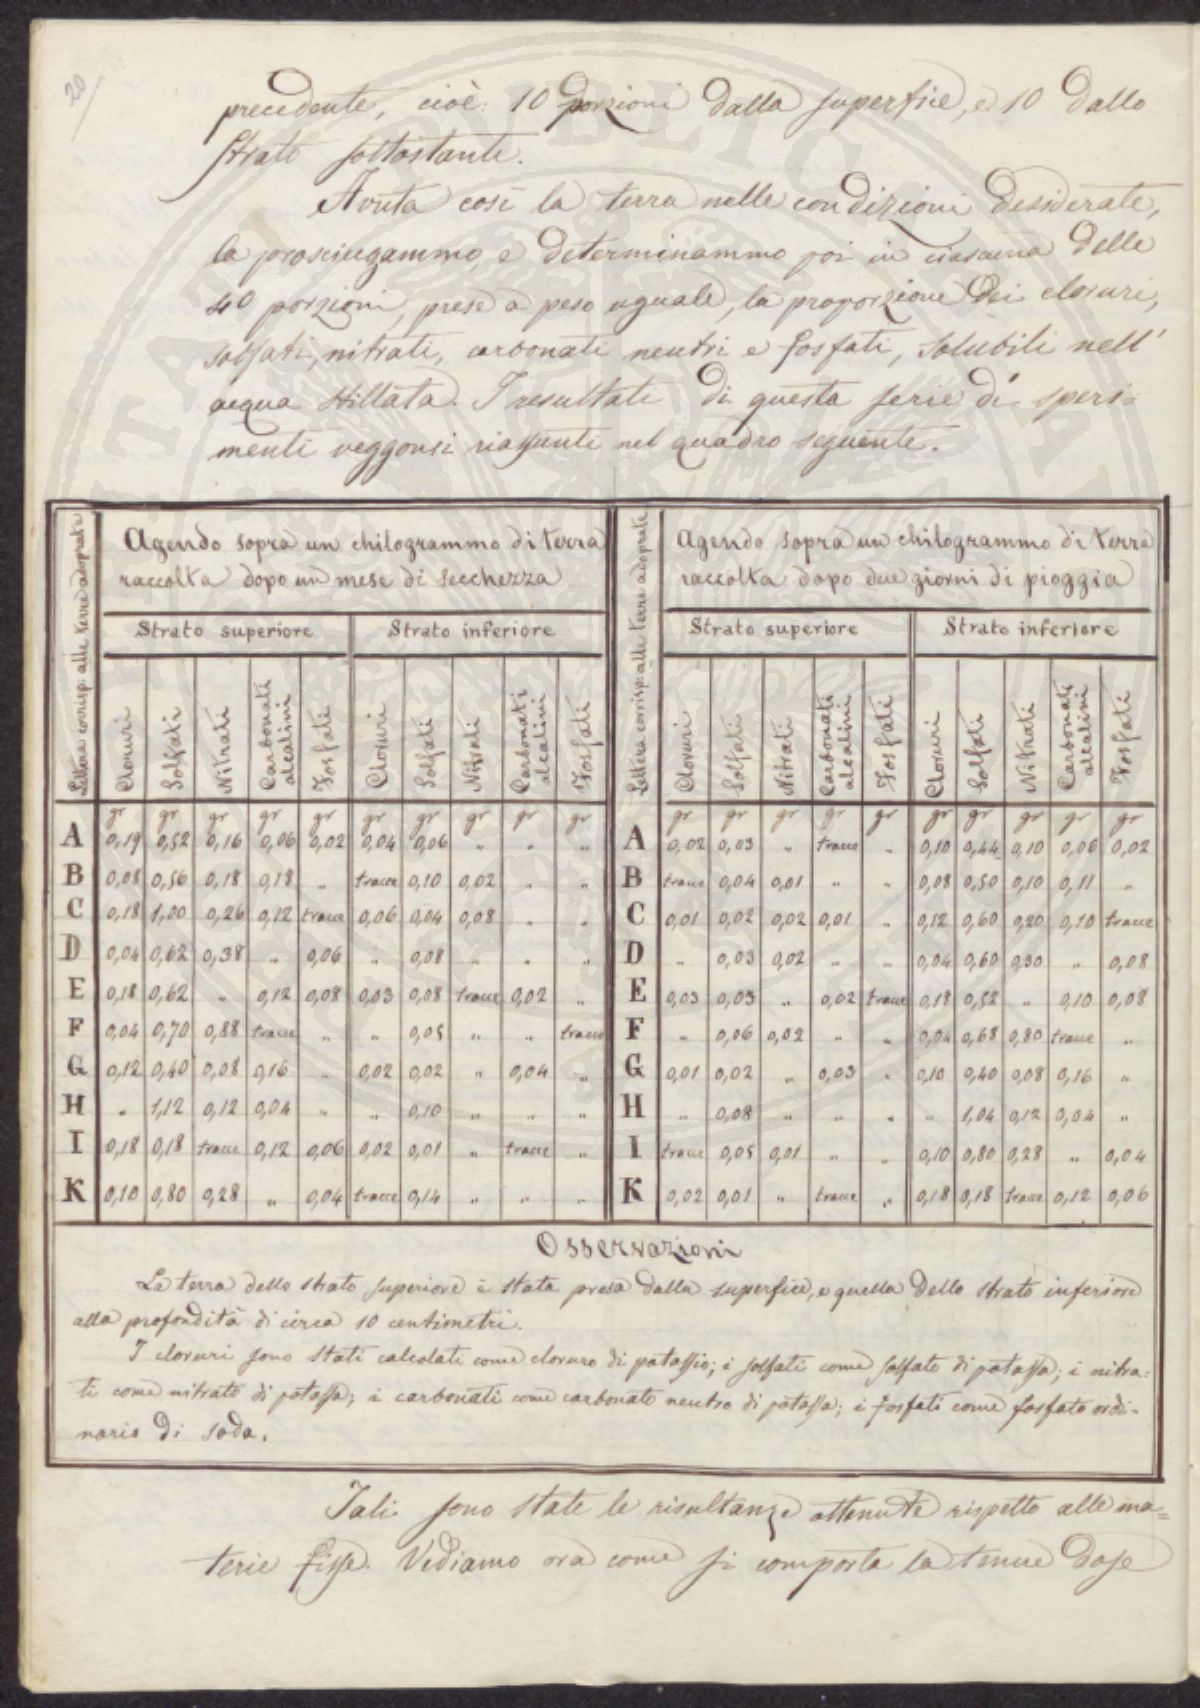 20
precedente, cioè: 10 porzioni dalla superfice, e 10 dallo
strato sottostante.
Avuta così la terra nelle condizioni desiderate,
la prosciugammo, e determinammo poi in ciascuna delle
40 porzioni, prese a peso uguale, la proporzione dei cloruri,
solfati, nitrati, carbonati neutri e fosfati, solubili nell'
acqua stillata. I resultati di questa serie di speri=
menti veggonsi riassunti nel quadro seguente.
Lettera corrisp: alle terre adoprate
Agendo sopra un chilogrammo di terra
raccolta dopo un mese di secchezza
Lettera corrisp: alle terre adoprate
Agendo sopra un chilogrammo di terra
raccolta dopo due giorni di pioggia
Strato superiore Strato inferiore Strato superiore Strato inferiore
Cloruri Solfati Nitrati Carbonati alcalini Fosfati Cloruri Solfati Nitrati Carbonati alcalini Fosfati Cloruri Solfati Nitrati Carbonati alcalini Fosfati Cloruri Solfati Nitrati Carbonati alcalini Fosfati
gr gr gr gr gr gr gr gr gr gr gr gr gr gr gr gr gr gr gr gr
A 0,19 0,52 0,16 0,06 0,02 0,04 0,06 " " " A 0,02 0,03 " tracce " 0,10 0,44 0,10 0,06 0,02
B 0,08 0,56 0,18 0,18 " tracce 0,10 0,02 " " B tracce 0,04 0,01 " " 0,08 0,50 0,10 0,11 "
C 0,18 1,00 0,26 0,12 tracce 0,06 0,04 0,08 " " C 0,01 0,02 0,02 0,01 " 0,12 0,60 0,20 0,10 tracce
D 0,04 0,62 0,38 " 0,06 " 0,08 " " " D " 0,03 0,02 " " 0,04 0,60 0,30 " 0,08
E 0,18 0,62 " 0,12 0,08 0,03 0,08 tracce 0,02 " E 0,03 0,03 " 0,02 tracce 0,18 0,52 " 0,10 0,08
F 0,04 0,70 0,88 tracce " " 0,05 " " tracce F " 0,06 0,02 " " 0,04 0,68 0,80 tracce "
G 0,12 0,40 0,08 0,16 " 0,02 0,02 " 0,04 " G 0,01 0,02 " 0,03 " 0,10 0,40 0,08 0,16 "
H " 1,12 0,12 0,04 " " 0,10 " " " H " 0,08 " " " " 1,04 0,12 0,04 "
I 0,18 0,18 tracce 0,12 0,06 0,02 0,01 " tracce " I tracce 0,05 0,01 " " 0,10 0,80 0,28 " 0,04
K 0,10 0,80 0,28 " 0,04 tracce 0,14 " " " K 0,02 0,01 " tracce " 0,18 0,18 tracce 0,12 0,06
Osservazioni
La terra dello strato superiore è stata presa dalla superfice, e quella dello strato inferiore
alla profondità di circa 10 centimetri.
I cloruri sono stati calcolati come cloruro di potassio; i solfati come solfato di potassa; i nitra=
ti come nitrato di potassa; i carbonati come carbonato neutro di potassa; i fosfati come fosfato ordi-
nario di soda.
Tali sono state le risultanze ottenute rispetto alle ma=
terie fisse. Vediamo ora come si comporta la tenue dose